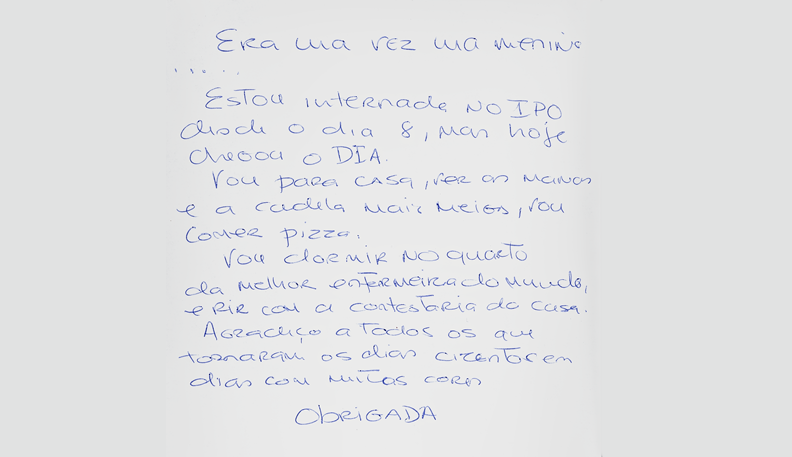 Era uma vez uma menina
.....
Estou internada no IPO
desde o dia 8, mas hoje
chegou o DIA.
Vou para casa, ver as manas
e a cadela mais meiga, vou
comer pizza.
Vou dormir no quarto
da melhor enfermeira do mundo,
e rir com a contestária da casa.
Agradeço a todos os que
tornaram os dias cizentos em
dias com muitas cores
OBRIGADA